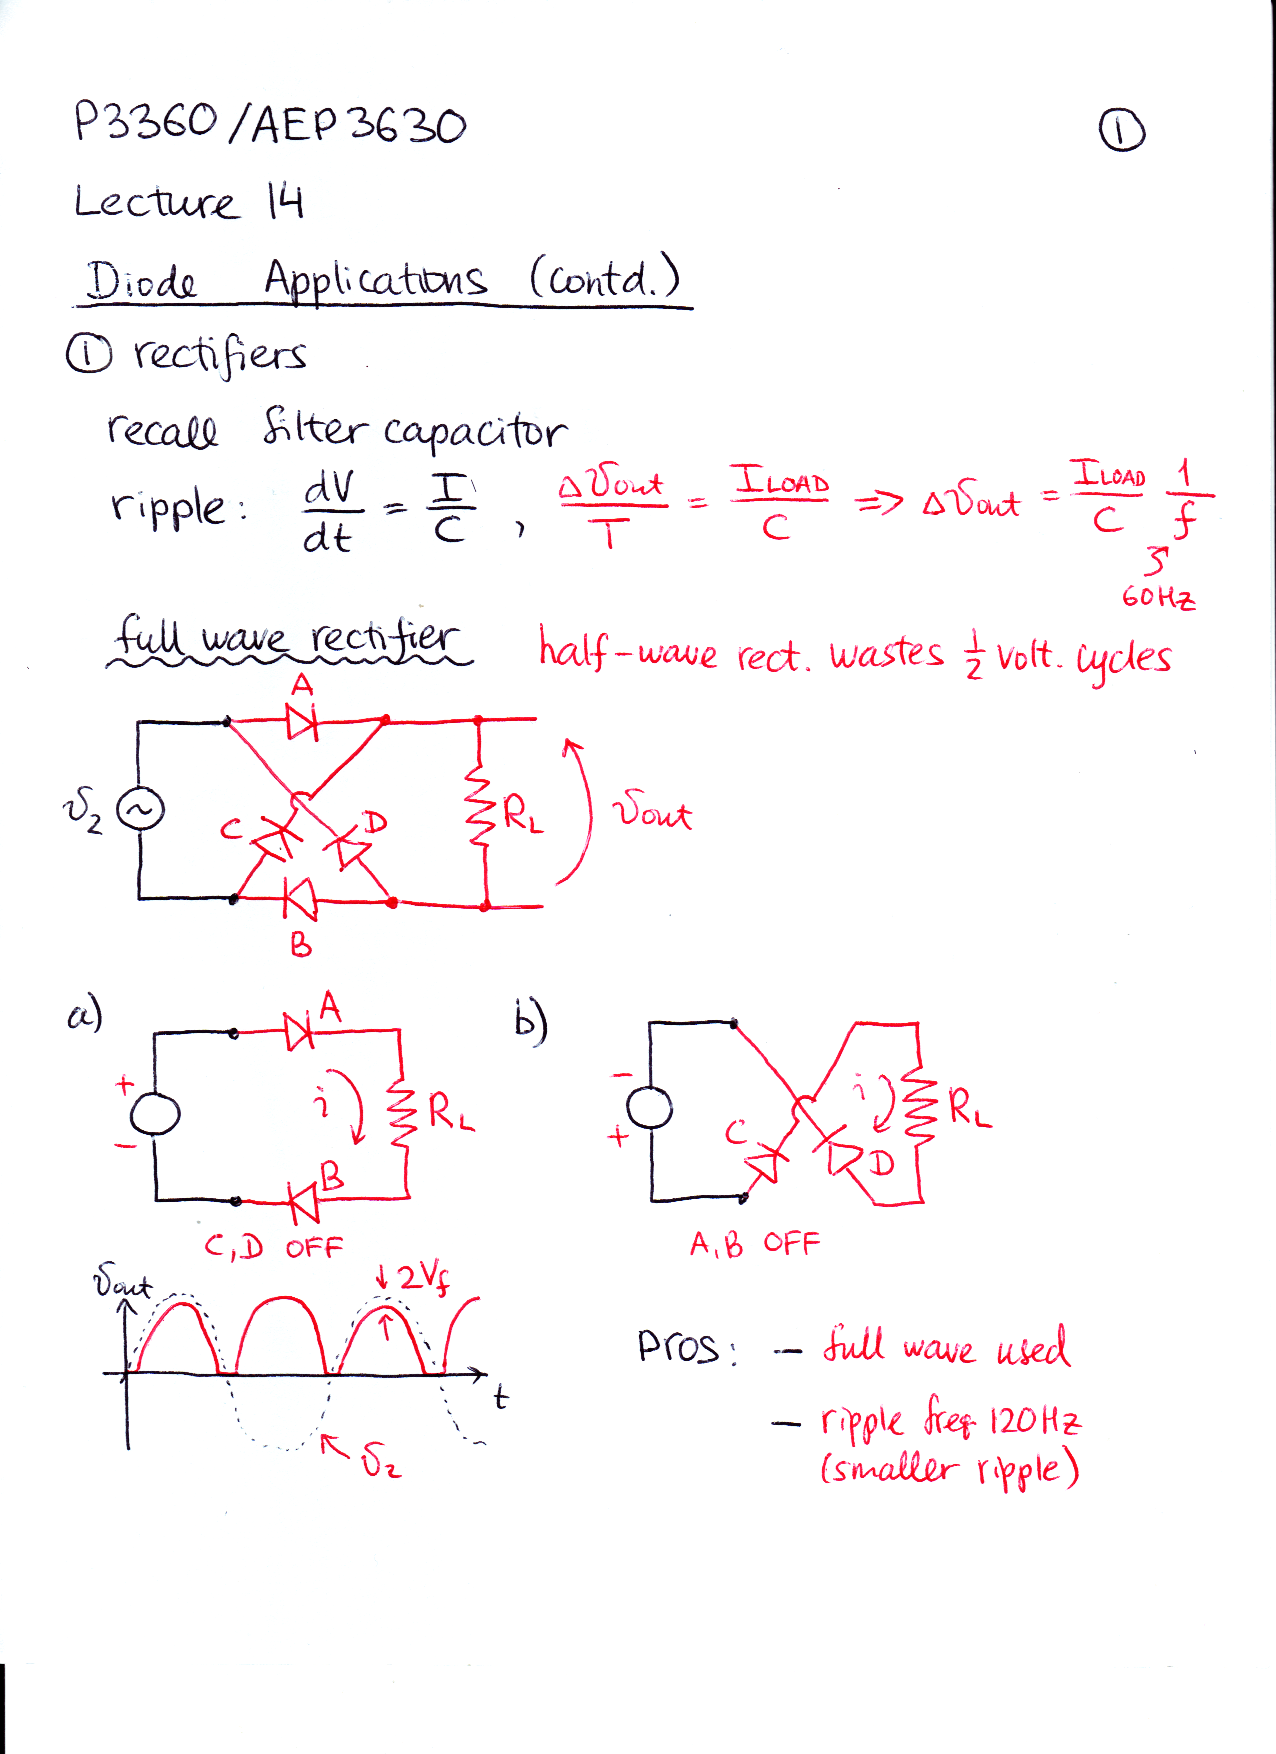 P3360/AEP3630
①
Lecture 14
Diode Applications (contd.)
① rectifiers
recall filter capacitor
ripple: dV/dt = I/C , Δvout/T = ILOAD/C => Δvout = ILOAD/C 1/f
60Hz
full wave rectifier half-wave rect. wastes 1/2 volt. cycles
A
v2
C
D
RL
vout
B
a)
A
+
-
i
RL
B
C,D OFF
b)
-
+
C
D
i
RL
A,B OFF
vout
↓2Vf
t
v2
pros: - full wave used
- ripple freq 120Hz
(smaller ripple)